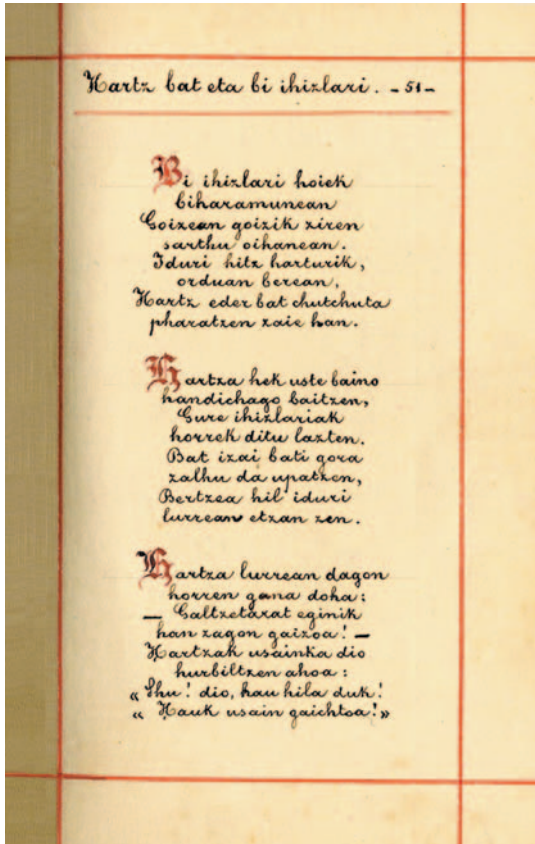 Hartz bat eta bi ihizlari. - 51 -
Bi ihizlari hoiek
biharamunean
Goizean goizik ziren
sarthu oihanean.
Iduri hitz harturik,
orduan berean,
Hartz eder bat chutchuta
pharatzen zaie han.
Hartza hek uste baino
handichago baitzen,
Gure ihizlariak
horrek ditu lazten.
Bat izai bati gora
zalhu da upatzen,
Bertzea hil iduri
lurrean etzan zen.
Hartza lurrean dagon
horren gana doha:
— Galtzetarat eginik
han zagon gaizoa! —
Hartzak usainka dio
hurbiltzen ahoa:
« Thu! dio, hau hila duk!
« Hauk usain gaichtoa! »